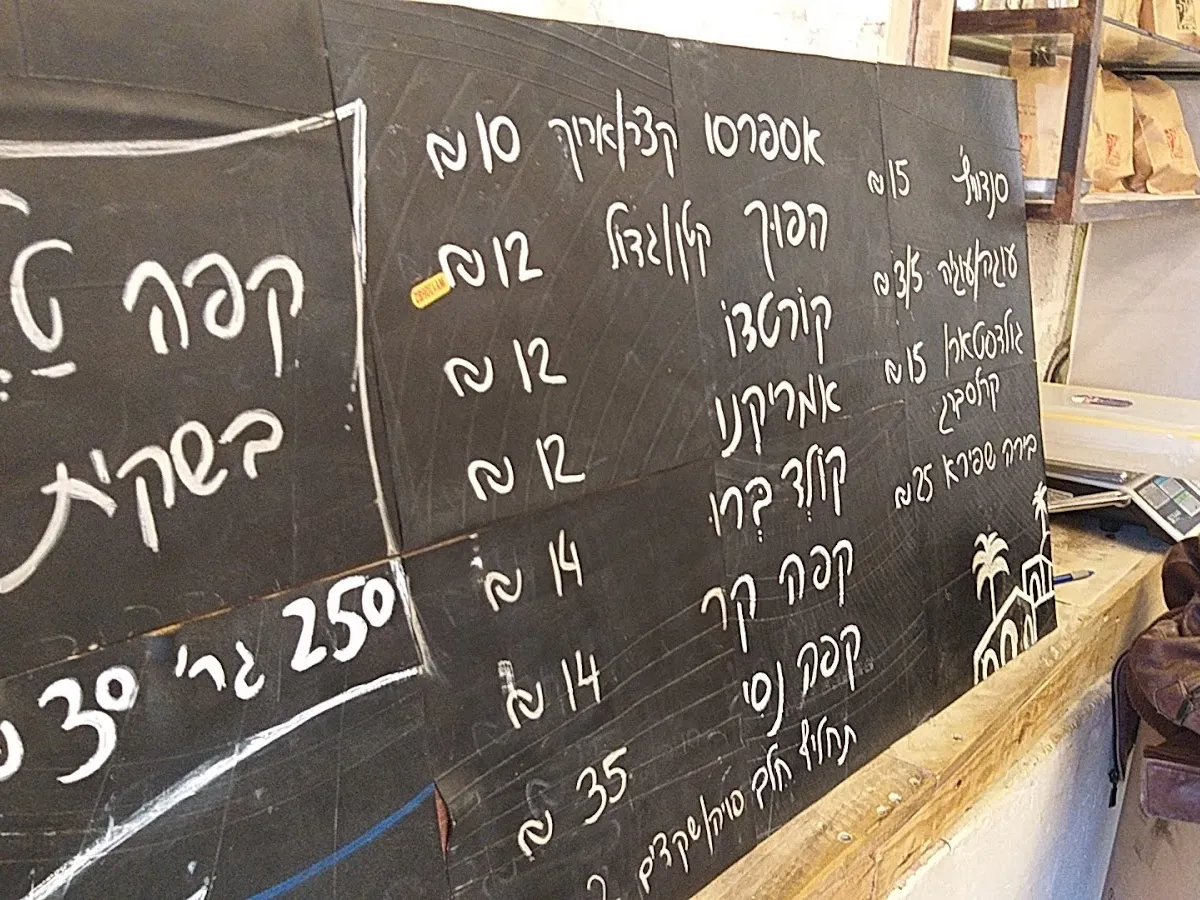 סנדוויץ' 15 ₪
עוגה/עוגיה 3/5 ₪
גולדסטאר/ 15 ₪
קרלסברג
בירה שפירא 25 ₪
אספרסו קצר/ארוך 10 ₪
הפוך קטן/גדול 12 ₪
קוֹרטדוֹ 12 ₪
אמריקנו 12 ₪
קוֹלְד בְּרוּ 14 ₪
קפה קר 14 ₪
קפה נסי 35 ₪
תחליף חלב סויה/שקדים
קפה
בשקית
250 גר' 30